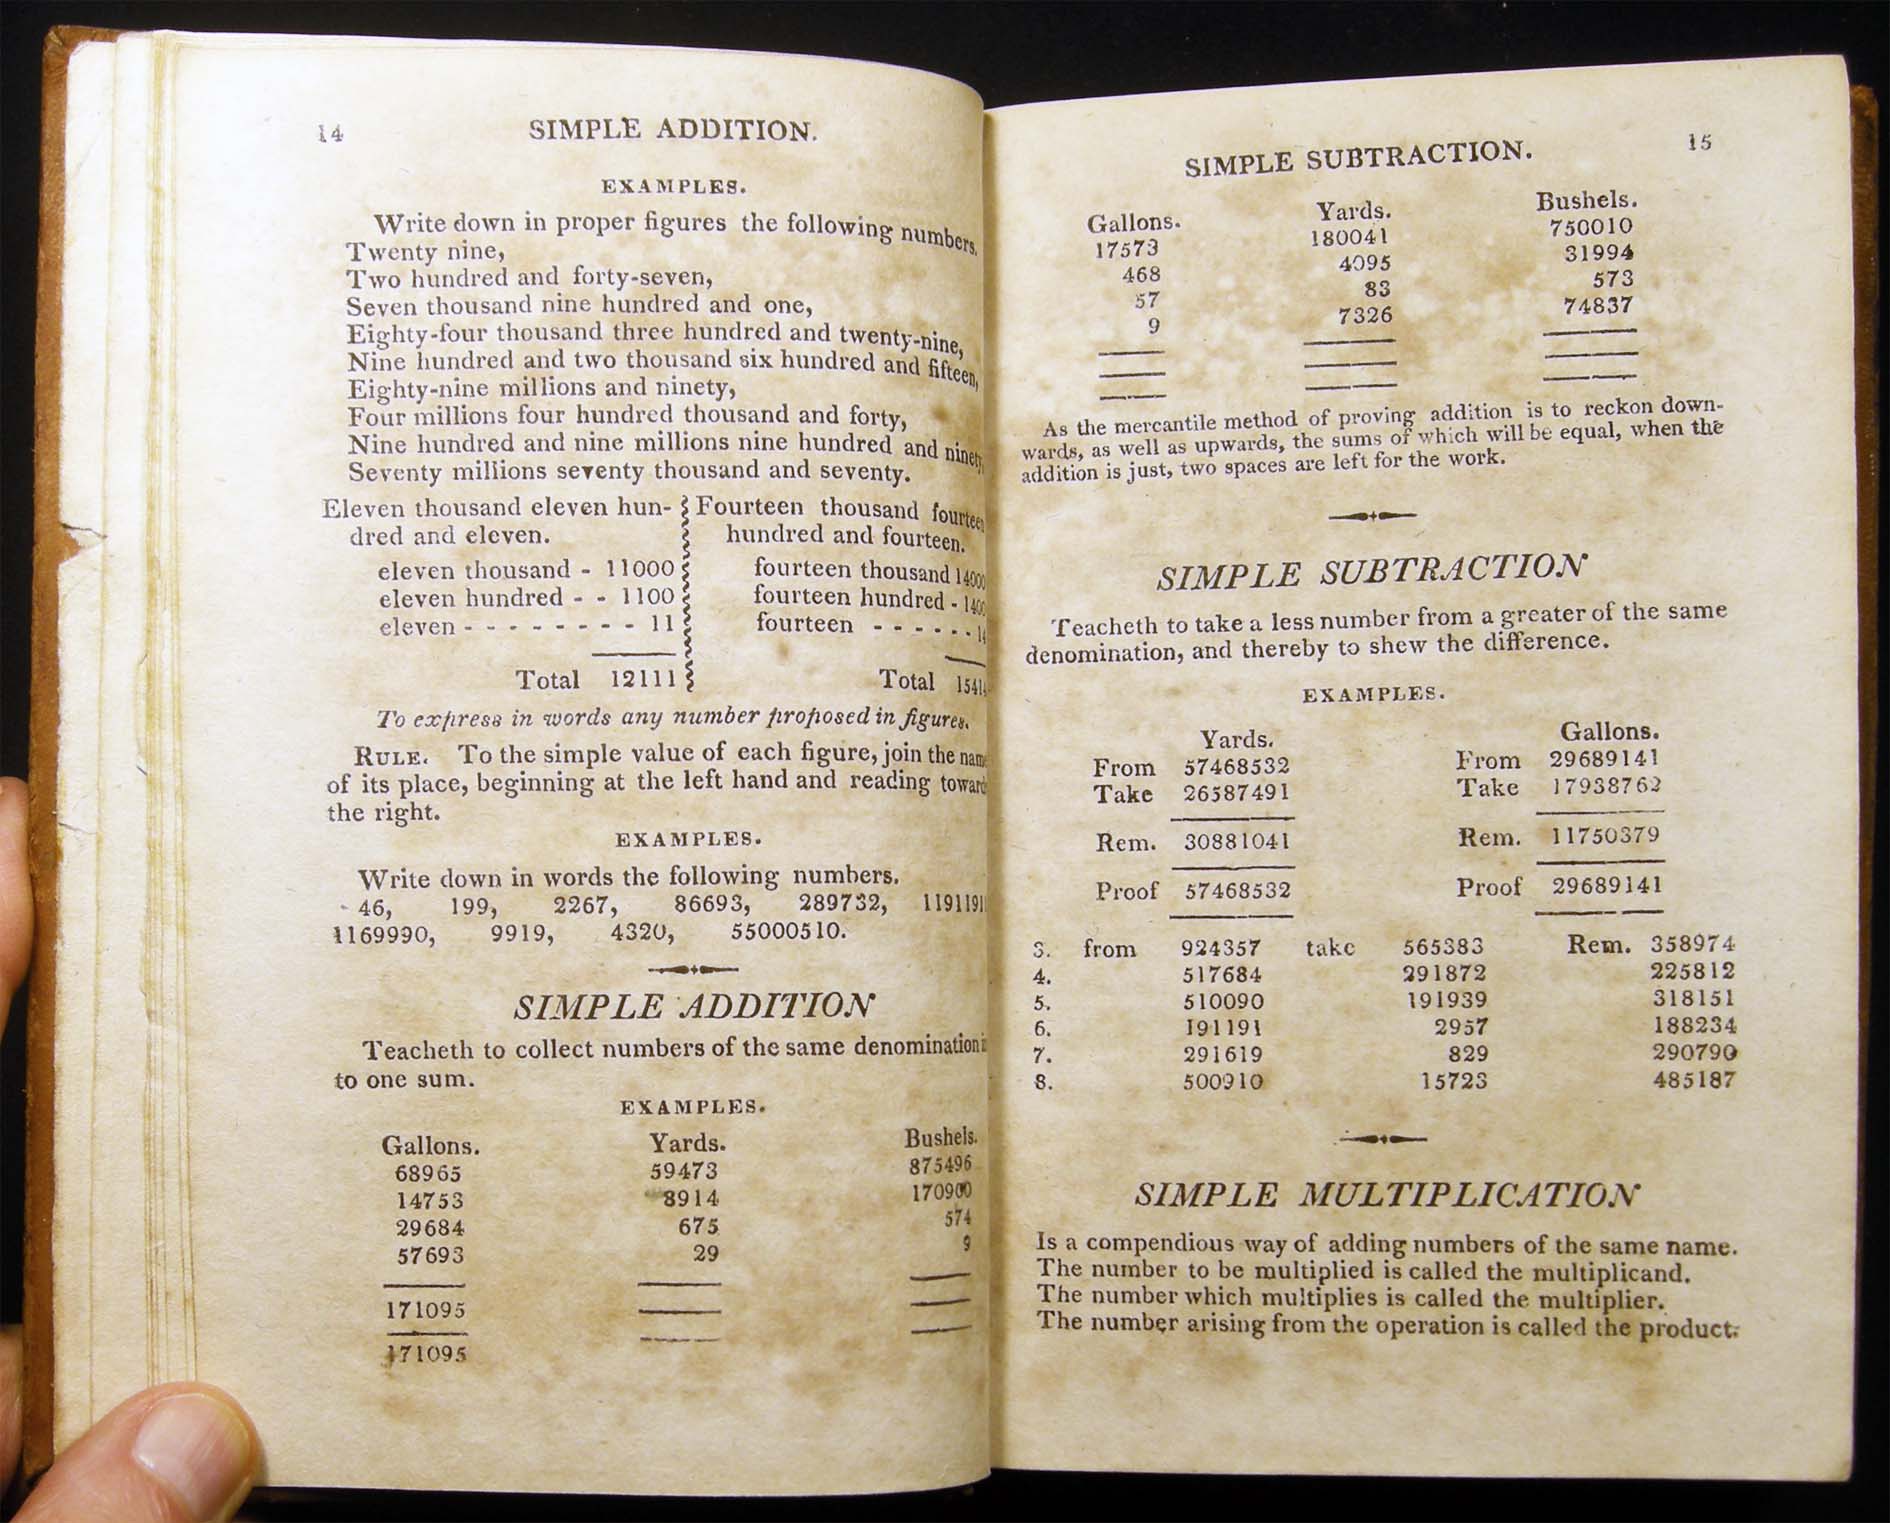 14 SIMPLE ADDITION.
EXAMPLES.
Write down in proper figures the following numbers.
Twenty nine,
Two hundred and forty-seven,
Seven thousand nine hundred and one,
Eighty-four thousand three hundred and twenty-nine,
Nine hundred and two thousand six hundred and fifteen,
Eighty-nine millions and ninety,
Four millions four hundred thousand and forty,
Nine hundred and nine millions nine hundred and ninety,
Seventy millions seventy thousand and seventy.
Eleven thousand eleven hun-
dred and eleven.
eleven thousand - 11000
eleven hundred - - 1100
eleven - - - - - - - - 11
Total 12111
Fourteen thousand fourteen
hundred and fourteen.
fourteen thousand 14000
fourteen hundred - 1400
fourteen - - - - - - 14
Total 15414
To express in words any number proposed in figures.
RULE. To the simple value of each figure, join the name
of its place, beginning at the left hand and reading toward
the right.
EXAMPLES.
Write down in words the following numbers.
46, 199, 2267, 86693, 289732, 1191191
1169990, 9919, 4320, 55000510.
SIMPLE ADDITION
Teacheth to collect numbers of the same denomination in
to one sum.
EXAMPLES.
Gallons. Yards. Bushels.
68965 59473 875496
14753 8914 170900
29684 675 574
57693 29 9
171095
171095
SIMPLE SUBTRACTION. 15
Gallons. Yards. Bushels.
17573 180041 750010
468 4095 31994
57 83 573
9 7326 74837
As the mercantile method of proving addition is to reckon down-
wards, as well as upwards, the sums of which will be equal, when the
addition is just, two spaces are left for the work.
SIMPLE SUBTRACTION
Teacheth to take a less number from a greater of the same
denomination, and thereby to shew the difference.
EXAMPLES.
Yards. Gallons.
From 57468532 From 29689141
Take 26587491 Take 17938762
Rem. 30881041 Rem. 11750379
Proof 57468532 Proof 29689141
3. from 924357 take 565383 Rem. 358974
4. 517684 291872 225812
5. 510090 191939 318151
6. 191191 2957 188234
7. 291619 829 290790
8. 500910 15723 485187
SIMPLE MULTIPLICATION
Is a compendious way of adding numbers of the same name.
The number to be multiplied is called the multiplicand.
The number which multiplies is called the multiplier.
The number arising from the operation is called the product.